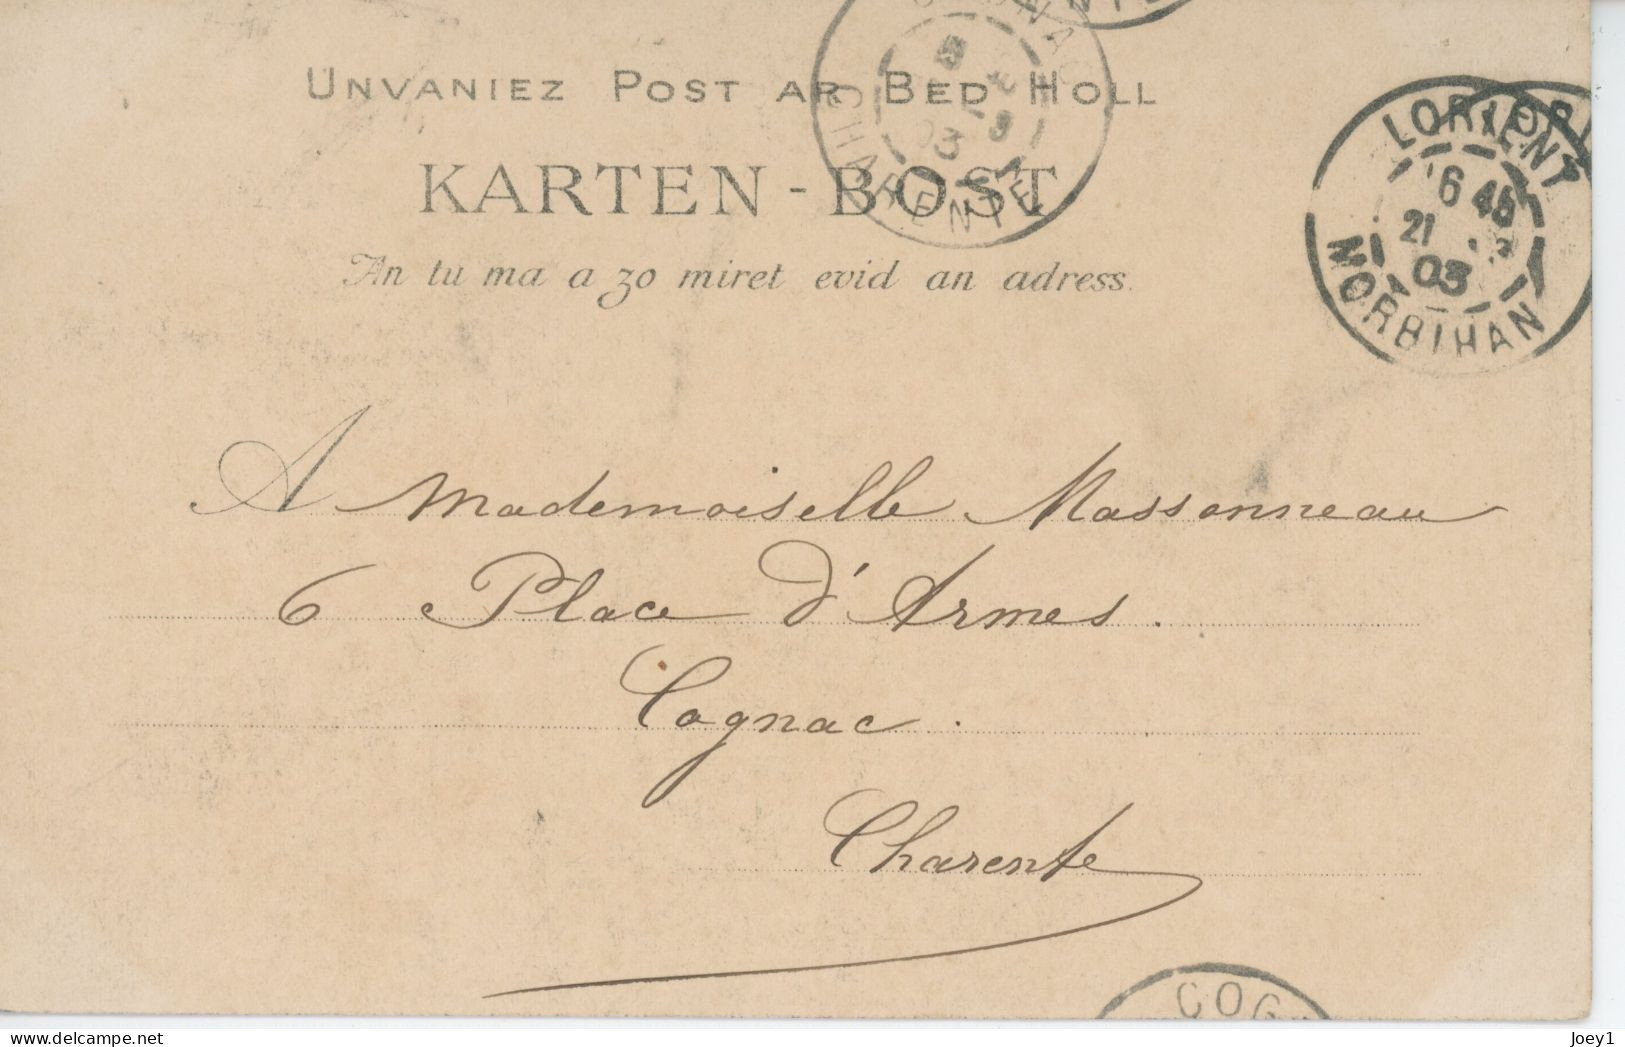 UNVANIEZ POST AR BED HOLL
KARTEN-BOST
An tu ma a zo miret evid an adress.
CHARENTE
03
LORIENT
6 45
21
03
MORBIHAN
A Mademoiselle Massonneau
6 Place d'Armes.
Cognac.
Charente
COG
Joey1